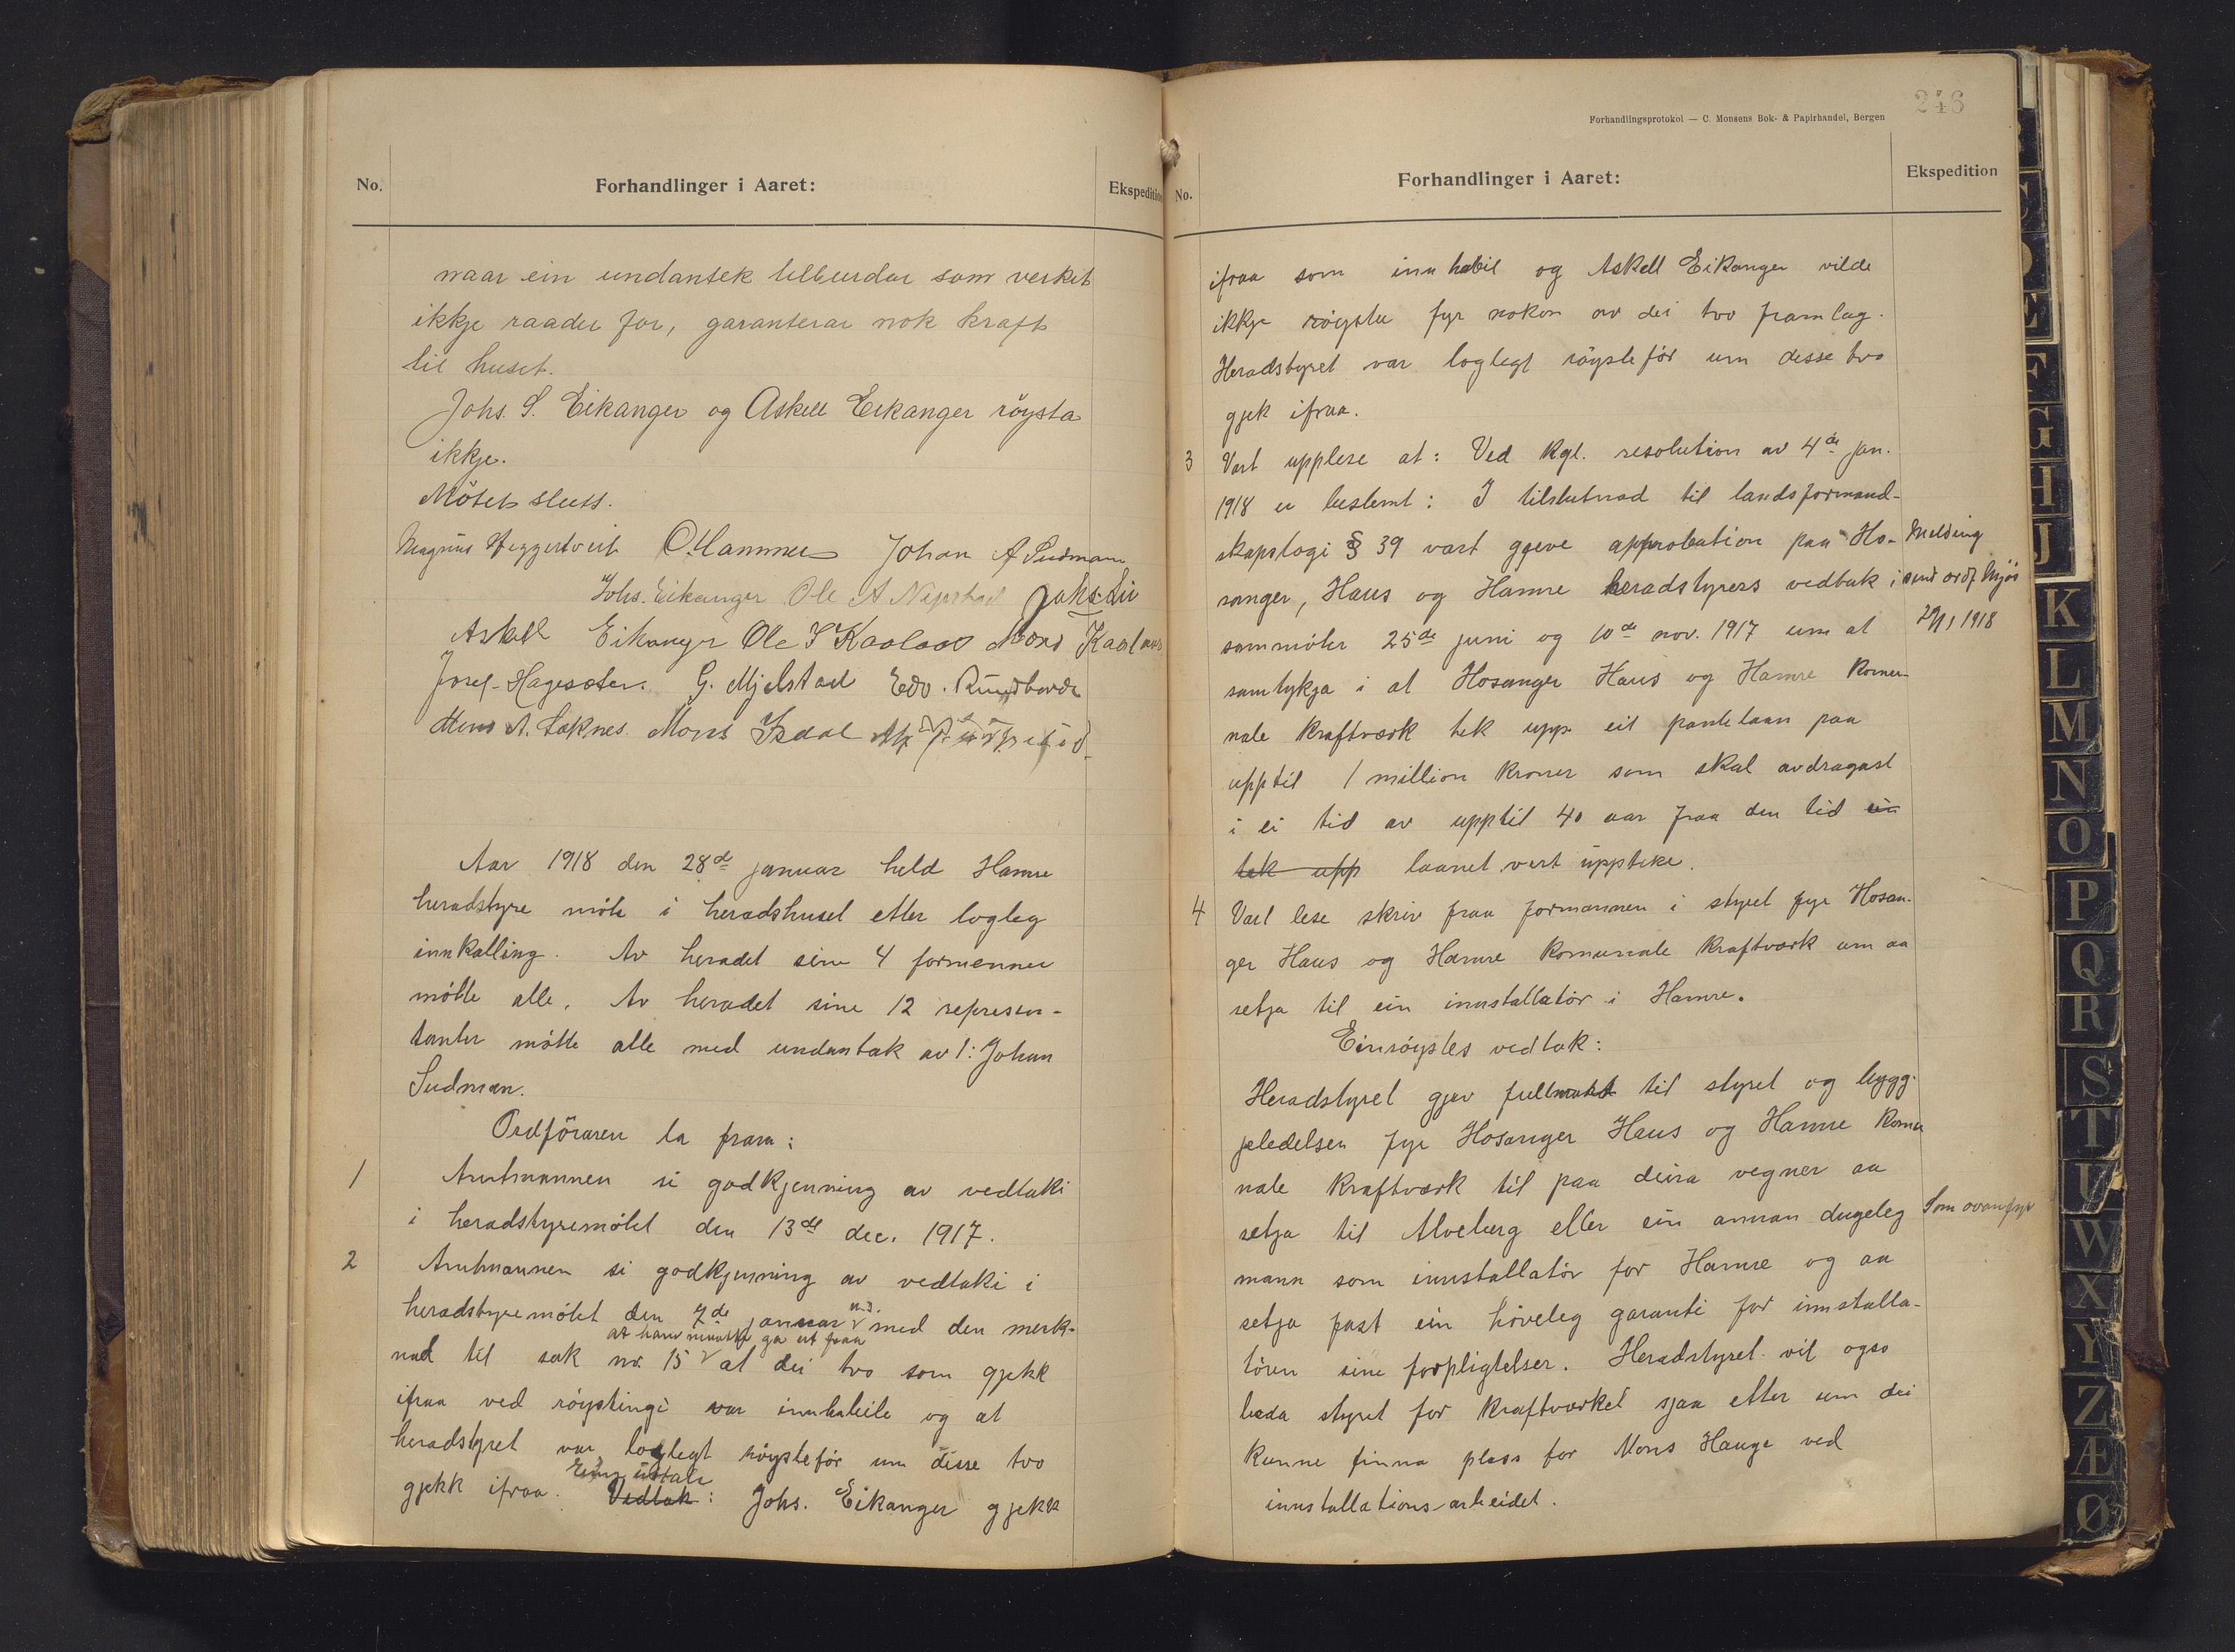 No.
Forhandlinger i Aaret:
Ekspedition
naar ein undantek tilburdar som verket
ikkje raader for, garanterar nok kraft
til huset.
Johs. S. Eikanger og Askell Eikanger röysta
ikkje.
Mötet slutt.
Magnus Heggertveit O. Hammer Johan A Sudmann
Johs. Eikanger Ole A Nepstad Johs. Li
Askell Eikanger Ole S Kaalaas Mons Kaalaas
Josef Hagesæter. G. Mjelstad Edv. Rundhovde
Mons A. Toknes. Mons Isdal
Aar 1918 den 28de januar held Hamre
heradstyre möte i heradshuset etter logleg
innkalling. Av heradet sine 4 formenner
mötte alle. Av heradet sine 12 represen-
tanter mötte alle med undantak av 1: Johan
Sudman.
Ordföraren la fram:
1 Amtmannen si godkjenning av vedtaki
i heradstyremötet den 13de dec. 1917.
2 Amtmannen si godkjenning av vedtaki i
heradstyremötet den 7de januar n.d. med den merk-
at han maatte ga ut fraa
nad til sak nr. 15 at dei tvo som gjekk
ifraa ved röystingi var innhabile og at
heradstyret var loglegt röysteför um disse tvo
gjekk ifraa. Vedtak: Johs. Eikanger gjekk
246
Forhandlingsprotokol — C. Monsens Bok- & Papirhandel, Bergen
No.
Forhandlinger i Aaret:
Ekspedition
ifraa som innhabil og Askell Eikanger vilde
ikkje röyste fyr nokon av dei tvo framlag.
Heradstyret var loglegt röysteför um desse tvo
gjek ifraa.
3 Vart upplese at: Ved kgl. resolution av 4de jan.
1918 er bestemt: I tilslutnad til landsformand-
skapslogi § 39 vart gjeve approbation paa Ho-
sanger, Haus og Hamre heradstyrers vedtak i
sammöter 25de juni og 10de nov. 1917 um at
samtykja i at Hosanger Haus og Hamre komu-
nale kraftværk tek upp eit pantelaan paa
upptil 1 million kroner som skal avdragast
i ei tid av upptil 40 aar fraa den tid ein
tek upp laanet vart uppteke.
Melding
send ordf. Mjös
29/1 1918
4 Vart lese skriv fraa formannen i styret fyr Hosan-
ger Haus og Hamre komunale kraftværk um aa
setja til ein innstallatör i Hamre.
Einröystes vedtak:
Heradstyret gjev fullmakt til styret og bygg-
jeledelsen fyr Hosanger Haus og Hamre komu
nale kraftværk til paa deira vegner aa
setja til Alveberg eller ein annan dugeleg
mann som innstallatör for Hamre og aa
setja fast ein höveleg garanti for innstalla-
tören sine forpligtelser. Heradstyret vil ogso
beda styret for kraftværket sjaa etter um dei
kunne finna plass for Mons Hauge ved
innstallations-arbeidet.
Som ovanfyr
E
F
G
H
J
K
L
M
N
O
P
Q
R
S
T
U
W
X
Y
Z
Æ
Ø